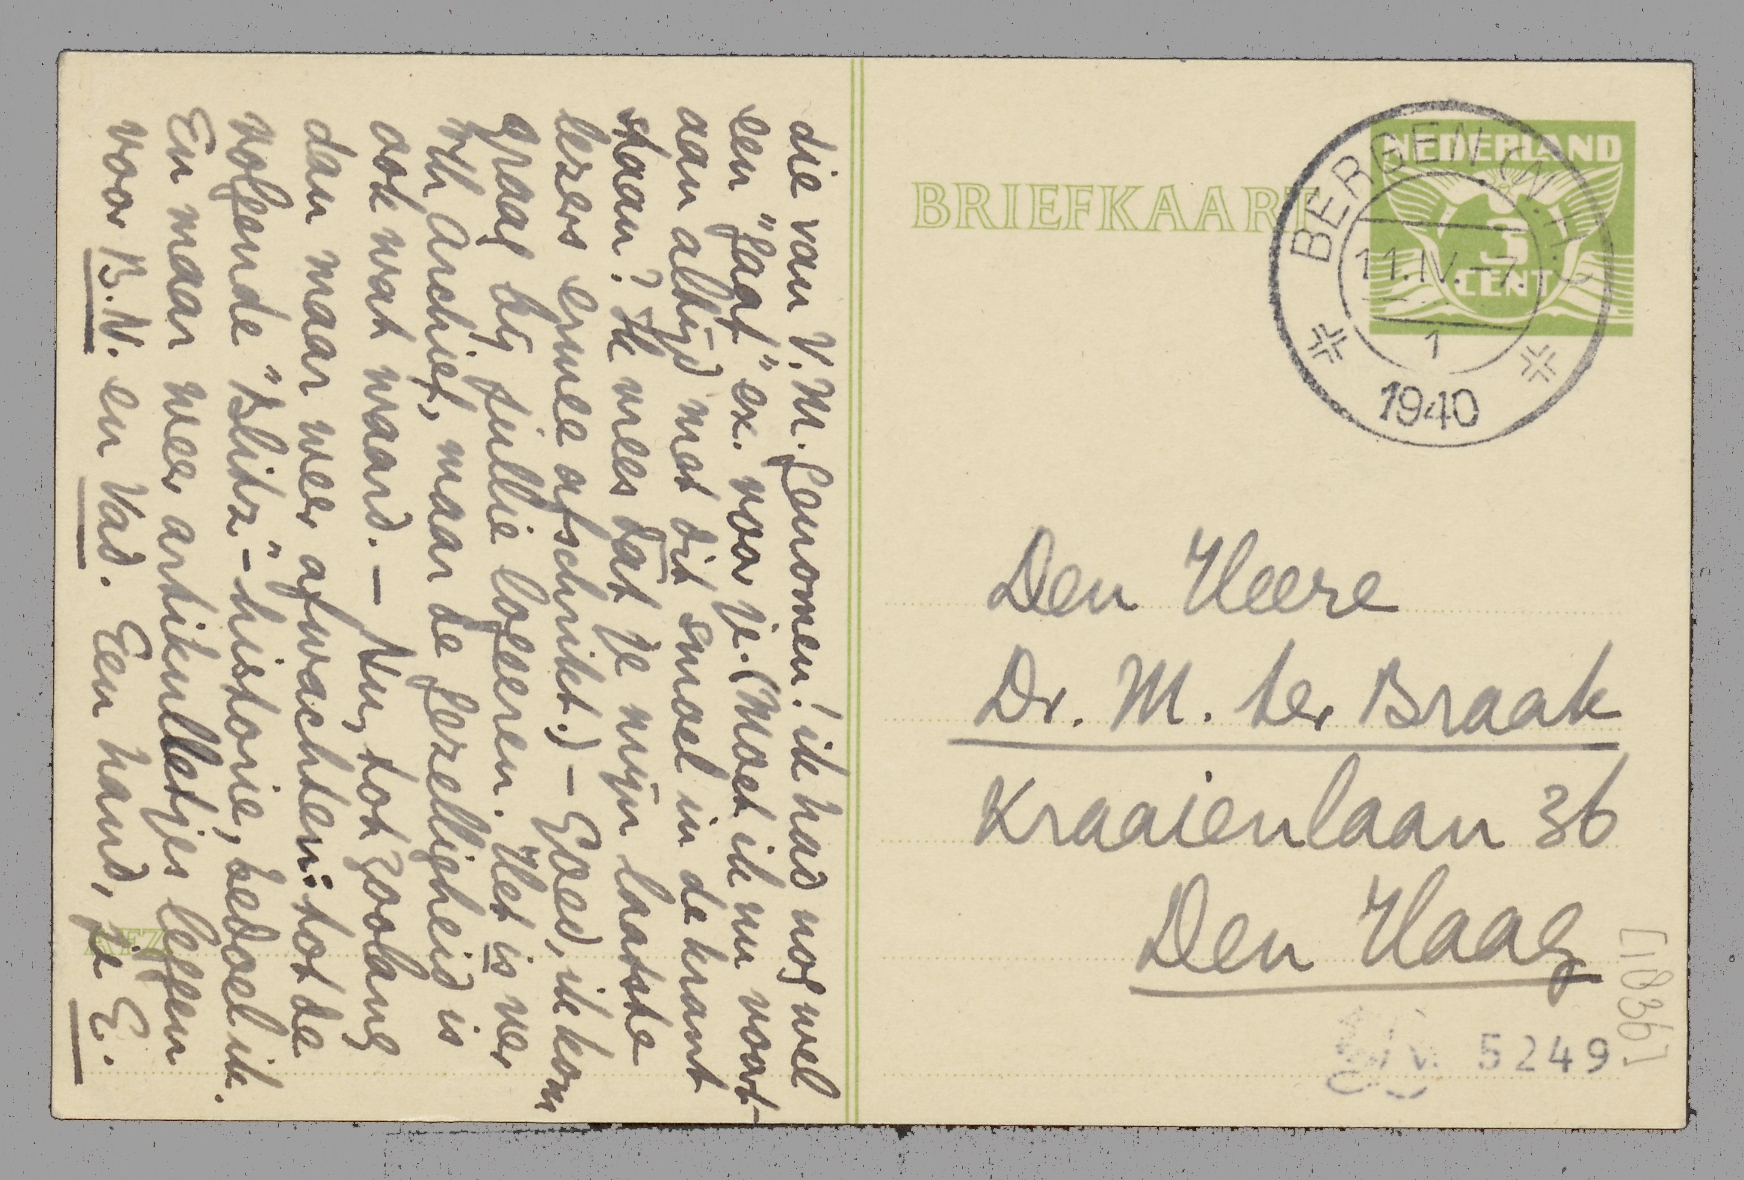 die van V.M. genomen! ik had nog wel
een "gaaf" ex. voor je. (Moet ik nu voort-
aan altijd met dit smoel in de krant
staan? Ik vrees dat je mijn laatste
lezers ermee afschrikt.) – Goed, ik kom
graag bij jullie logeeren. Het is ver
v/h Archief, maar de gezelligheid is
ook wat waard. – Nu, tot zoolang
dan maar weer afwachten: tot de
volgende "Blitz"-historie, bedoel ik.
En maar weer artikulletjes leggen
voor B.N. en Vad. Een hand, je E.
AFZ
BRIEFKAART
NEDERLAND
3
CENT
BERGEN (N.H.)
11.IV.-7.
1
1940
Den Heere
Dr. M. ter Braak
Kraaienlaan 36
Den Haag
[1836]
5249